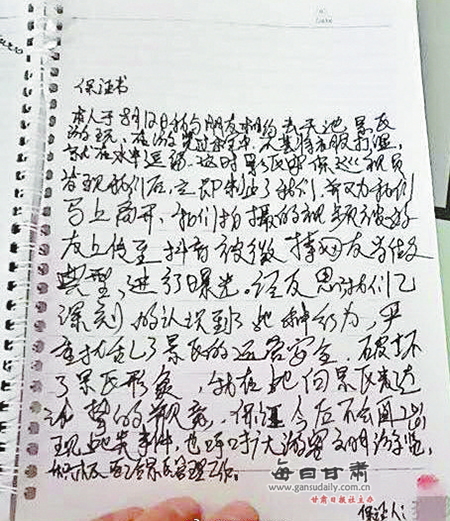 保证书
本人于8月12日和与朋友相约去天池景区
游玩,在游览过程中不慎将衣服打湿,
就在水中逗留。这时景区环保巡视员
发现我们后,立即制止了我们,并又为我们
马上离开,我们拍摄的视频被游
友上传至抖音被微博网友当作反
典型,进行曝光。经反思我们已
深刻的认识到了此种行为,严
重扰乱了景区的运营安全,破坏
了景区形象,我在此向景区表达
诚挚的歉意,保证今后不会再出
现此类事件,也呼吁广大游客文明游览,
积极配合景区管理工作。
保证人:
每日甘肃
www.gansudaily.com.cn
甘肃日报社主办